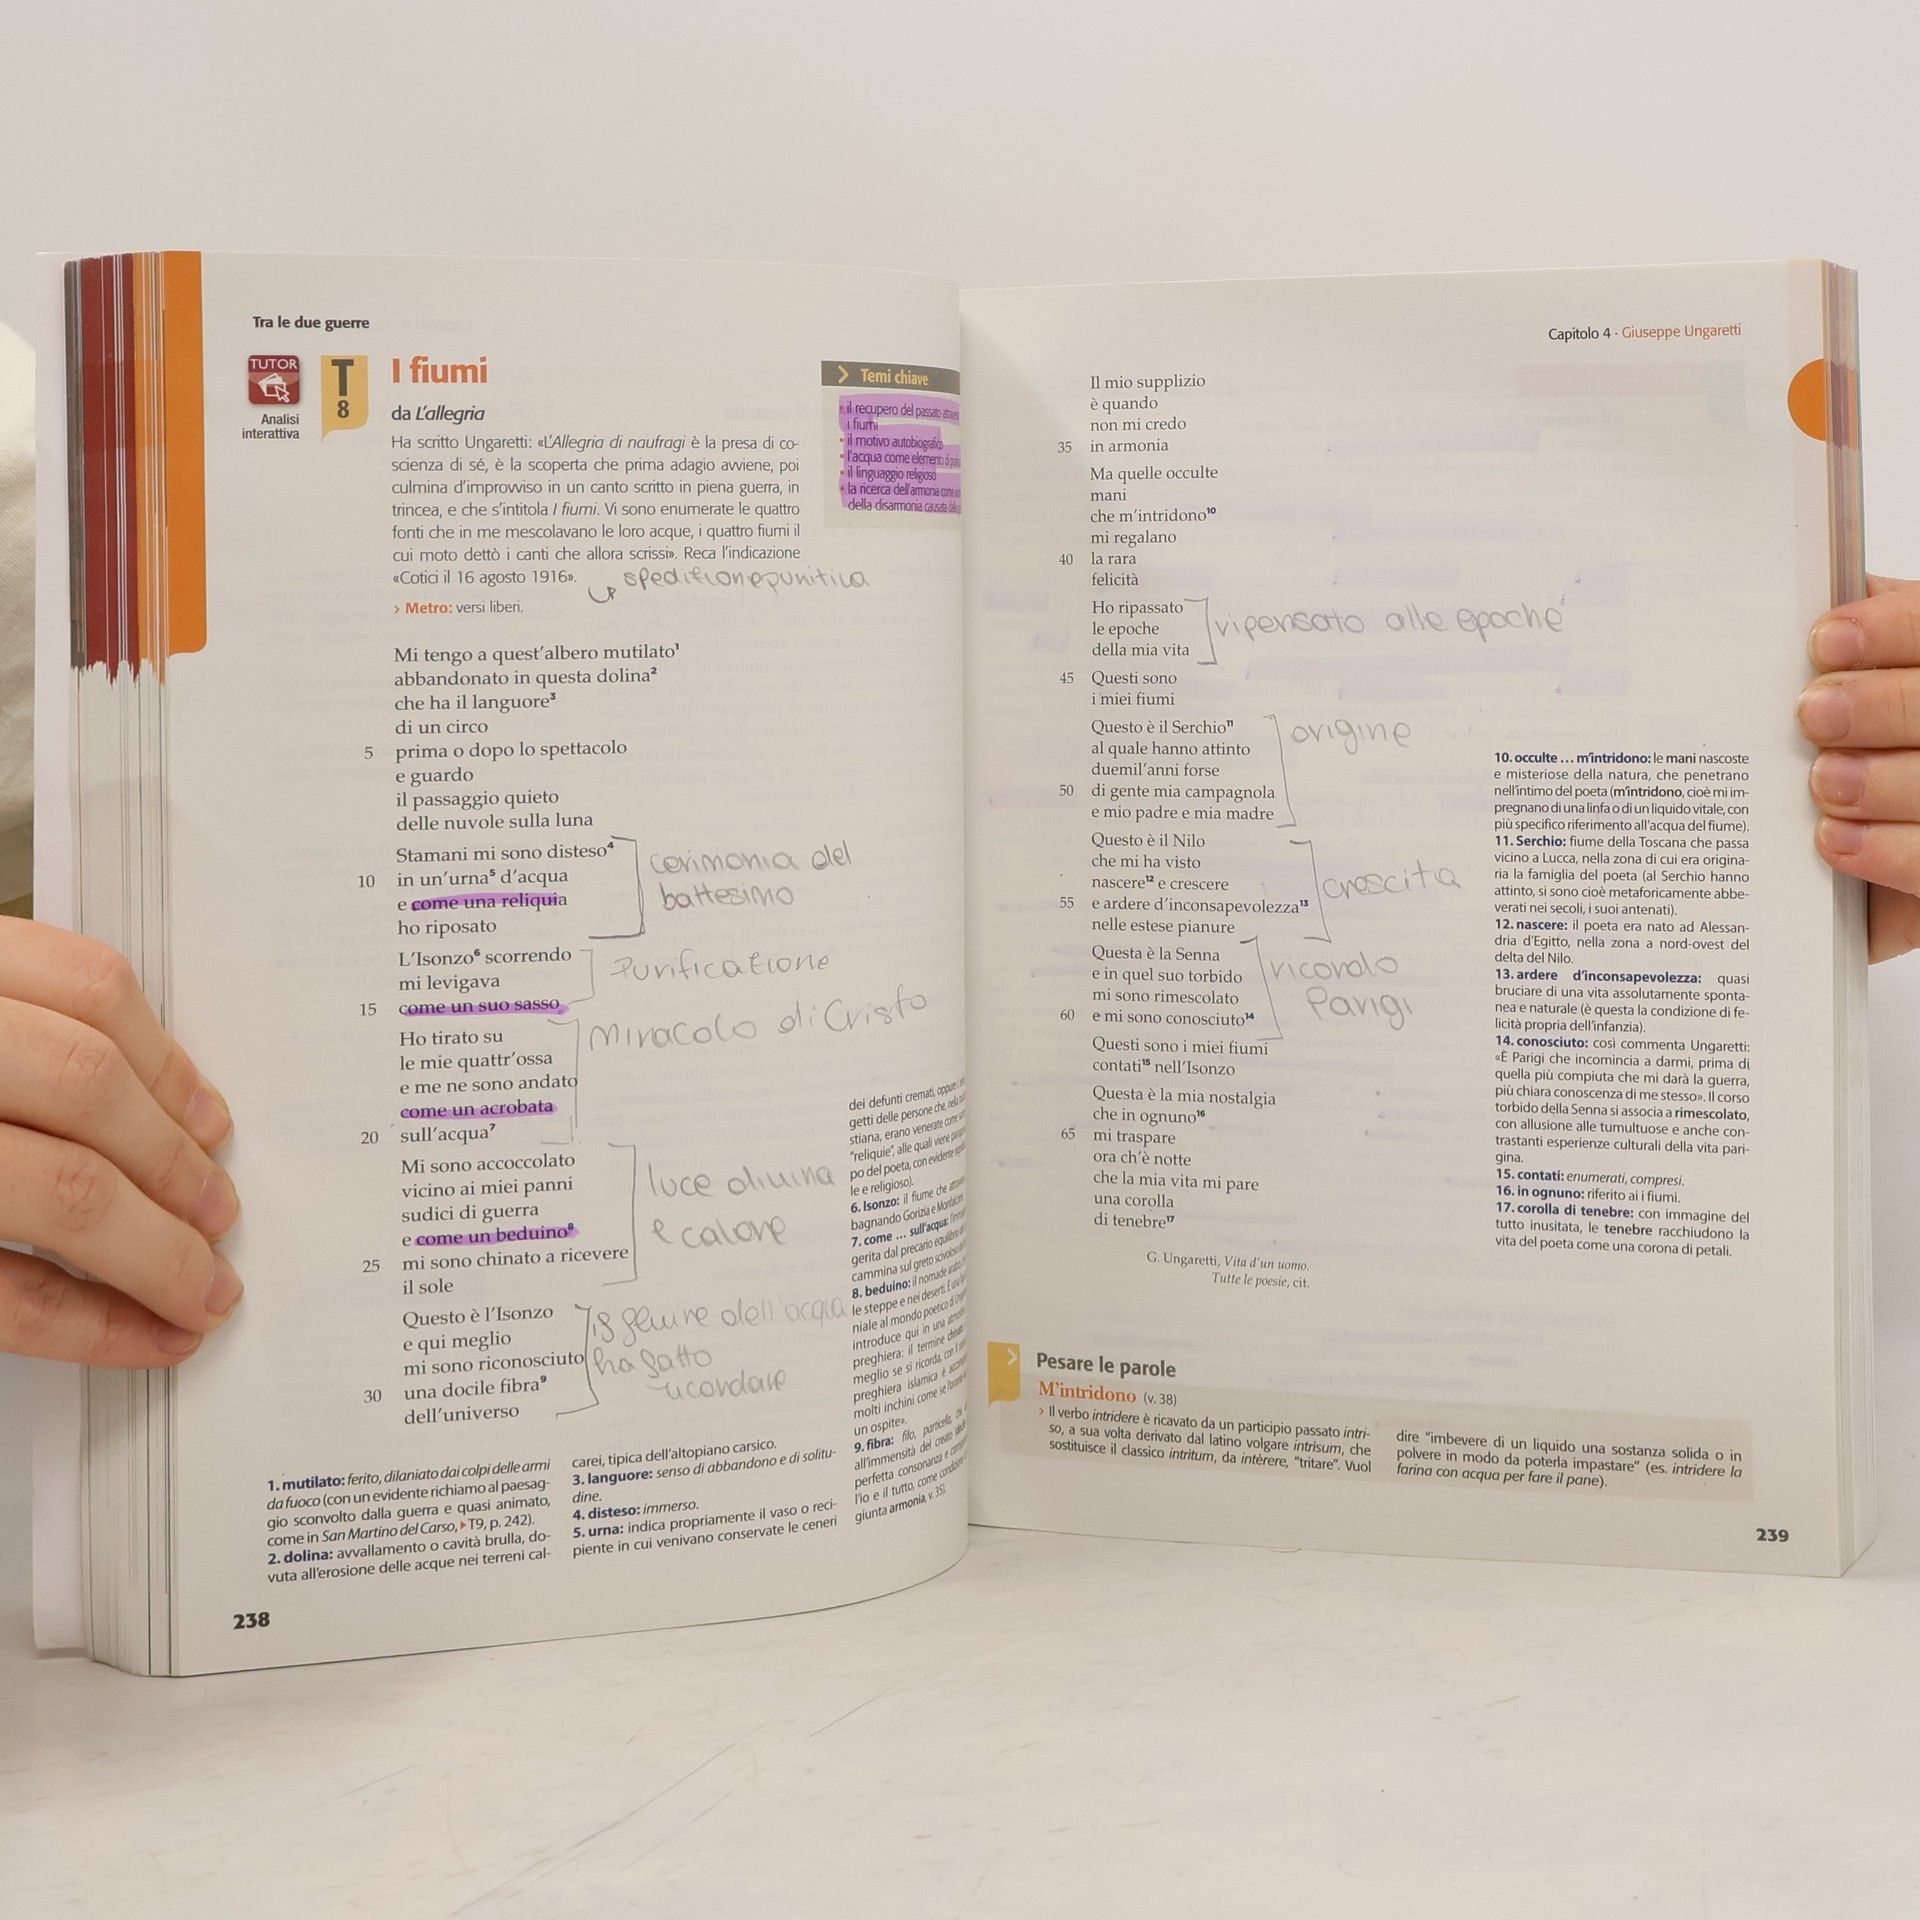 Tra le due guerre
TUTOR
Analisi
interattiva
T
8
I fiumi
da L'allegria
Ha scritto Ungaretti: «L'Allegria di naufragi è la presa di co-
scienza di sé, è la scoperta che prima adagio avviene, poi
culmina d'improvviso in un canto scritto in piena guerra, in
trincea, e che s'intitola I fiumi. Vi sono enumerate le quattro
fonti che in me mescolavano le loro acque, i quattro fiumi il
cui moto dettò i canti che allora scrissi». Reca l'indicazione
«Cotici il 16 agosto 1916».
spedizione punitiva
› Metro: versi liberi.
Temi chiave
• il recupero del passato
i fiumi
• il motivo autobiografico
• l'acqua come elemento di
• il linguaggio religioso
• la ricerca dell'armonia come
della disarmonia causata
Mi tengo a quest'albero mutilato¹
abbandonato in questa dolina²
che ha il languore³
di un circo
5 prima o dopo lo spettacolo
e guardo
il passaggio quieto
delle nuvole sulla luna
Stamani mi sono disteso⁴
10 in un'urna⁵ d'acqua
e come una reliquia
ho riposato
cerimonia del
battesimo
L'Isonzo⁶ scorrendo
mi levigava
15 come un suo sasso
Purificazione
Ho tirato su
le mie quattr'ossa
e me ne sono andato
come un acrobata
20 sull'acqua⁷
Miracolo di Cristo
Mi sono accoccolato
vicino ai miei panni
sudici di guerra
e come un beduino⁸
25 mi sono chinato a ricevere
il sole
luce divina
e calore
Questo è l'Isonzo
e qui meglio
mi sono riconosciuto
30 una docile fibra⁹
dell'universo
fluire dell'acqua
ha fatto
ricordare
1. mutilato: ferito, dilaniato dai colpi delle armi
da fuoco (con un evidente richiamo al paesag-
gio sconvolto dalla guerra e quasi animato,
come in San Martino del Carso, ▸T9, p. 242).
2. dolina: avvallamento o cavità brulla, do-
vuta all'erosione delle acque nei terreni cal-
carei, tipica dell'altopiano carsico.
3. languore: senso di abbandono e di solitu-
dine.
4. disteso: immerso.
5. urna: indica propriamente il vaso o reci-
piente in cui venivano conservate le ceneri
dei defunti cremati, oppure i
getti delle persone che, nella
stiana, erano venerate come
"reliquie", alle quali viene
po del poeta, con evidente
le e religioso).
6. Isonzo: il fiume che
bagnando Gorizia e Monfalcone.
7. come ... sull'acqua:
gerita dal precario equilibrio
cammina sul greto scivoloso
8. beduino: il nomade arabo
le steppe e nei deserti. È una
niale al mondo poetico di
introduce qui in una
preghiera: il termine chinato
meglio se si ricorda, con il
preghiera islamica è
molti inchini come se
un ospite».
9. fibra: filo, particella,
all'immensità del creato
perfetta consonanza e
l'io e il tutto, come
giunta armonia, v. 35).
238
Capitolo 4 · Giuseppe Ungaretti
Il mio supplizio
è quando
non mi credo
35 in armonia
Ma quelle occulte
mani
che m'intridono¹⁰
mi regalano
40 la rara
felicità
Ho ripassato
le epoche
della mia vita
ripensato alle epoche
45 Questi sono
i miei fiumi
Questo è il Serchio¹¹
al quale hanno attinto
duemil'anni forse
50 di gente mia campagnola
e mio padre e mia madre
origine
Questo è il Nilo
che mi ha visto
nascere¹² e crescere
55 e ardere d'inconsapevolezza¹³
nelle estese pianure
crescita
Questa è la Senna
e in quel suo torbido
mi sono rimescolato
60 e mi sono conosciuto¹⁴
ricordo
Parigi
Questi sono i miei fiumi
contati¹⁵ nell'Isonzo
Questa è la mia nostalgia
che in ognuno¹⁶
65 mi traspare
ora ch'è notte
che la vita mi pare
una corolla
di tenebre¹⁷
G. Ungaretti, Vita d'un uomo.
Tutte le poesie, cit.
10. occulte ... m'intridono: le mani nascoste
e misteriose della natura, che penetrano
nell'intimo del poeta (m'intridono, cioè mi im-
pregnano di una linfa o di un liquido vitale, con
più specifico riferimento all'acqua del fiume).
11. Serchio: fiume della Toscana che passa
vicino a Lucca, nella zona di cui era origina-
ria la famiglia del poeta (al Serchio hanno
attinto, si sono cioè metaforicamente abbe-
verati nei secoli, i suoi antenati).
12. nascere: il poeta era nato ad Alessan-
dria d'Egitto, nella zona a nord-ovest del
delta del Nilo.
13. ardere d'inconsapevolezza: quasi
bruciare di una vita assolutamente sponta-
nea e naturale (è questa la condizione di fe-
licità propria dell'infanzia).
14. conosciuto: così commenta Ungaretti:
«È Parigi che incomincia a darmi, prima di
quella più compiuta che mi darà la guerra,
più chiara conoscenza di me stesso». Il corso
torbido della Senna si associa a rimescolato,
con allusione alle tumultuose e anche con-
trastanti esperienze culturali della vita pari-
gina.
15. contati: enumerati, compresi.
16. in ognuno: riferito ai i fiumi.
17. corolla di tenebre: con immagine del
tutto inusitata, le tenebre racchiudono la
vita del poeta come una corona di petali.
Pesare le parole
M'intridono (v. 38)
› Il verbo intridere è ricavato da un participio passato intri-
so, a sua volta derivato dal latino volgare intrisum, che
sostituisce il classico intrìtum, da intèrere, "tritare". Vuol
dire "imbevere di un liquido una sostanza solida o in
polvere in modo da poterla impastare" (es. intridere la
farina con acqua per fare il pane).
239